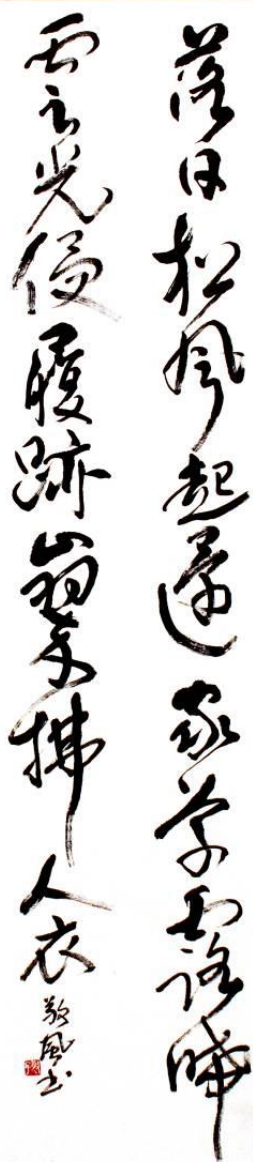 落日松風起還家草露晞
雲光侵履跡山翠拂人衣
敬風书